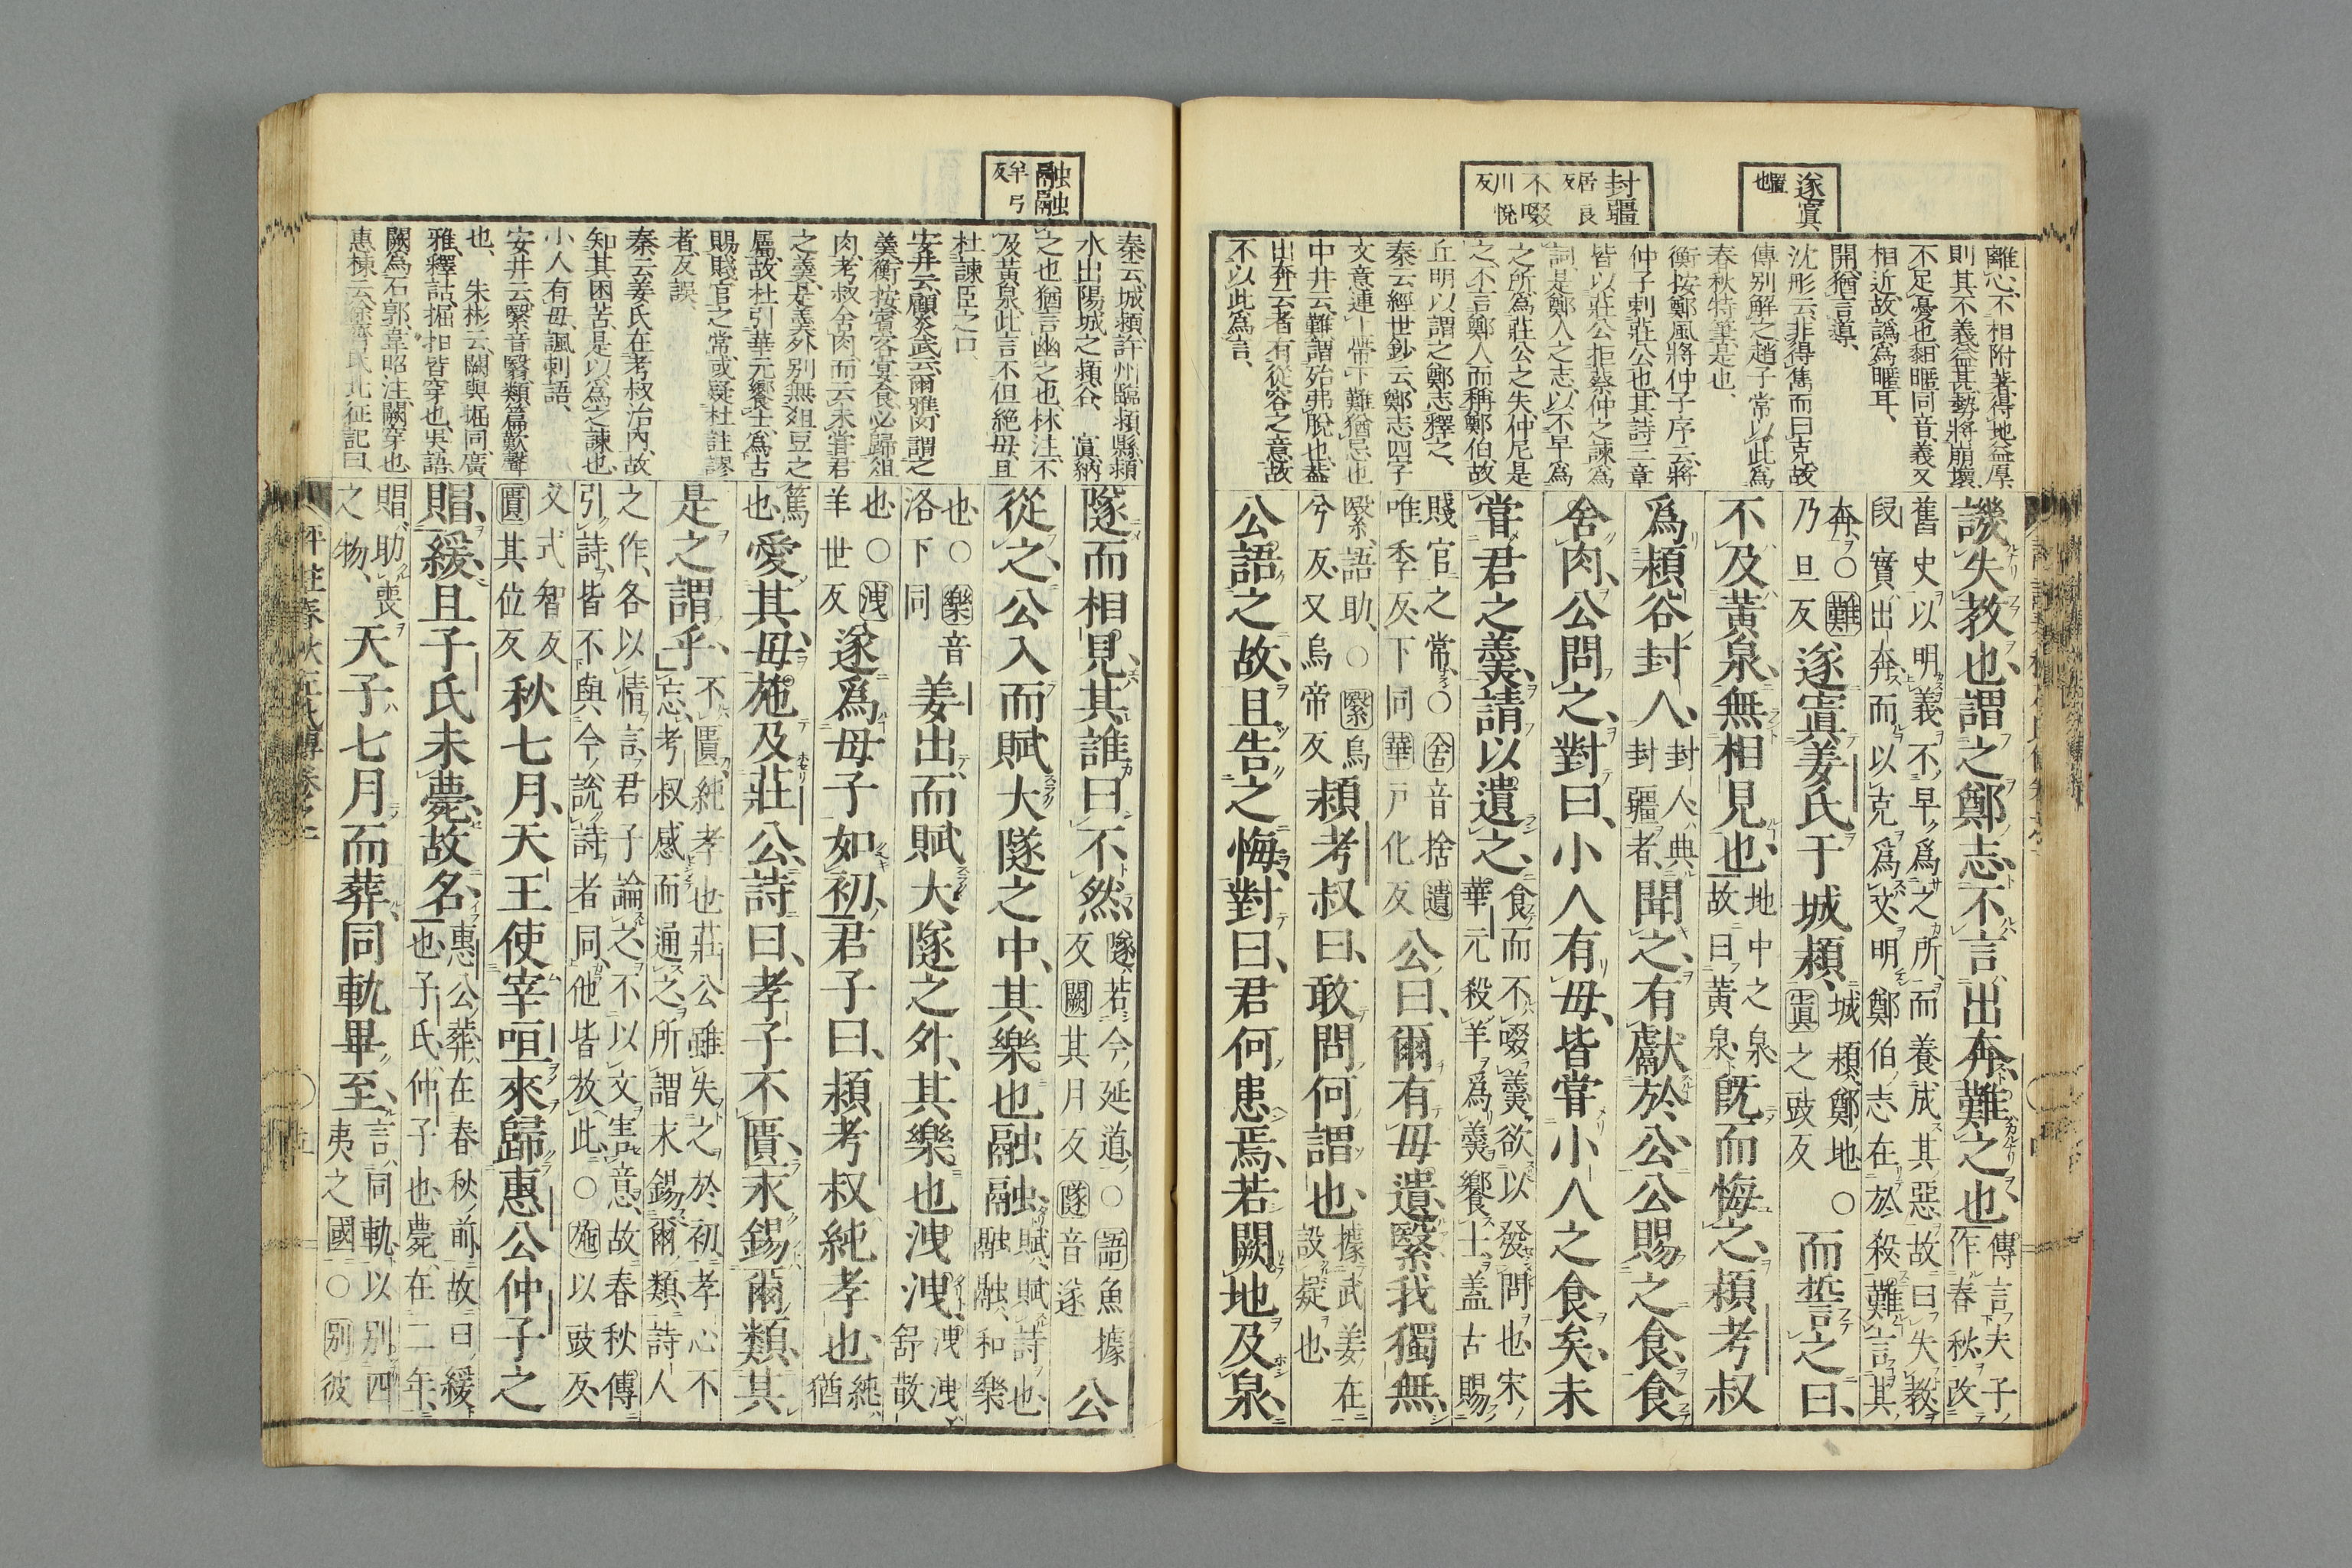 遂寘
置也
封疆
居良反
不啜
川悅反
離心、不相附著、得地益厚
則其不義益甚、勢將崩壞、
不足憂也、䵒暱同音、義又
相近、故譌為暱耳、
開、猶言導、
沈彤云、非得雋而曰克、故
傳別解之、趙子常以此為
春秋特筆、是也、
衡按、鄭風將仲子序云、將
仲子刺莊公也、其詩三章
皆以莊公拒蔡仲之諫為
詞、是鄭人之志、以不早為
之所、為莊公之失、仲尼是
之、不言鄭人而稱鄭伯、故
丘明以謂之鄭志釋之、
秦云、經世鈔云、鄭志四字
文意連上帶下、難猶忌也
中井云、難謂殆弗脫也、蓋
出奔云者、有從容之意、故
不以此為言、
譏失教也、謂之鄭志、不言出奔、難之也、傳言夫子作春秋、改
舊史以明義、不早爲之所、而養成其惡、故曰失教、段實出奔、而以克爲文、明鄭伯志在於殺、難言其
奔、○難乃旦反遂寘姜氏于城潁、城潁、鄭地、○寘之豉反而誓之曰、
不及黃泉、無相見也、地中之泉、故曰黃泉、既而悔之、潁考叔
爲潁谷封人、封人、典封疆者、聞之、有獻於公、公賜之食、食
舍肉、公問之、對曰、小人有母、皆嘗小人之食矣、未
嘗君之羹、請以遺之、食而不啜羹、欲以發問也、宋華元殺羊爲羹饗士、蓋古賜
賤官之常、○舍音捨遺唯季反下同華戸化反公曰、爾有母遺、繄我獨無、
繄、語助、○繄烏兮反、又烏帝反潁考叔曰、敢問何謂也、據武姜在設疑也、
公語之故、且告之悔、對曰、君何患焉、若闕地及泉、
融融
羊弓反
秦云、城潁、許州臨潁縣、潁
水出陽城之潁谷、寘、納
之也、猶言幽之也、林注、不
及黃泉、此言不但絕母、且
杜諫臣之口、
安井云、顧炎武云、爾雅、肉謂之
羹、衡按、賓客宴食、必歸俎
肉、考叔舍肉、而云未嘗君
之羹、是羹外別無俎豆之
屬、故杜引華元饗士、為古
賜賤官之常、或疑杜註謬
者、反誤、
秦云、姜氏在考叔治內、故
知其困苦、是以為之諫也、
小人有母、諷刺語、
安井云、繄音翳、類篇歎聲
也、朱彬云、闕與掘同、廣
雅、釋詁、掘抇皆穿也、吳語、
闕為石郭、韋昭注、闕、穿也
惠棟云、徐齊民北征記曰、
隧而相見、其誰曰不然、隧、若今延道、○語魚據反闕其月反隧音遂公
從之、公入而賦、大隧之中、其樂也融融、賦、賦詩也、融融、和樂
也、○樂音洛下同姜出而賦、大隧之外、其樂也洩洩、洩洩、舒散
也、○洩羊世反遂爲母子如初、君子曰、潁考叔純孝也、純、猶
篤也、愛其母、施及莊公、詩曰、孝子不匱、永錫爾類、其
是之謂乎、不匱、純孝也、莊公雖失之於初、孝心不忘、考叔感而通之、所謂永錫爾類、詩人
之作、各以情言、君子論之、不以文害意、故春秋傳引詩、皆不與今說詩者同、他皆放此、○施以豉反、
又式智反匱其位反秋七月、天王使宰咺來歸惠公仲子之
賵、緩、且子氏未薨、故名、惠公葬、在春秋前、故曰緩也、子氏、仲子也、薨、在二年、
賵、助喪之物、天子七月而葬、同軌畢至、言同軌、以別四夷之國、○別彼
評註春秋左氏傳卷之一